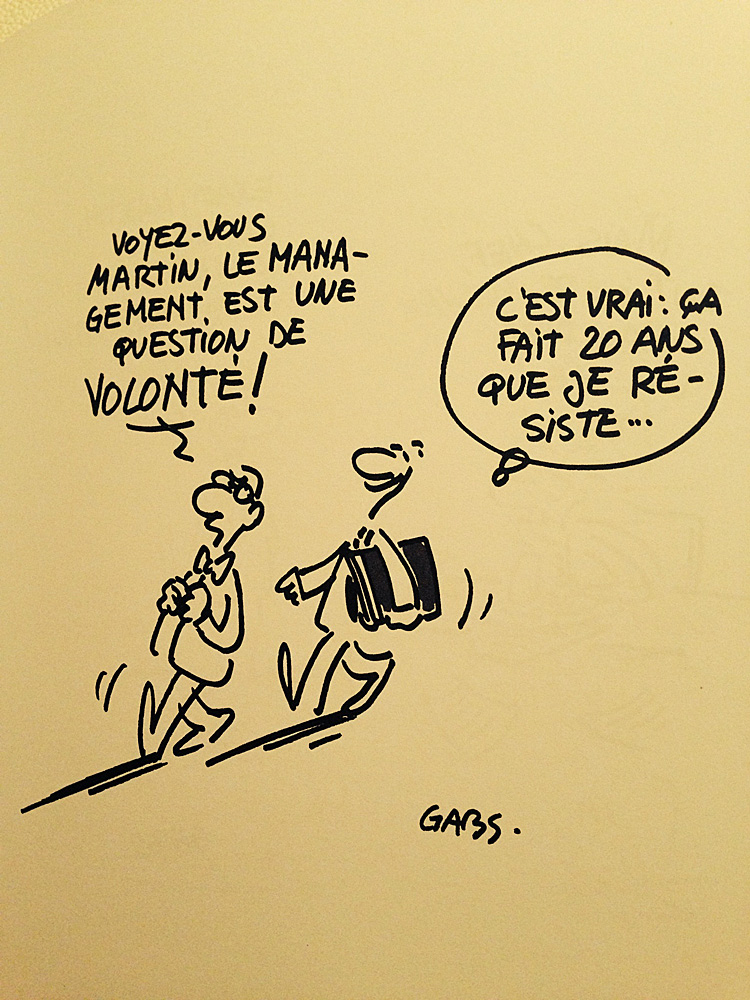 VOYEZ-VOUS
MARTIN, LE MANA-
GEMENT, EST UNE
QUESTION DE
VOLONTÉ!
C'EST VRAI: ÇA
FAIT 20 ANS
QUE JE RÉ-
SISTE...
GABS.